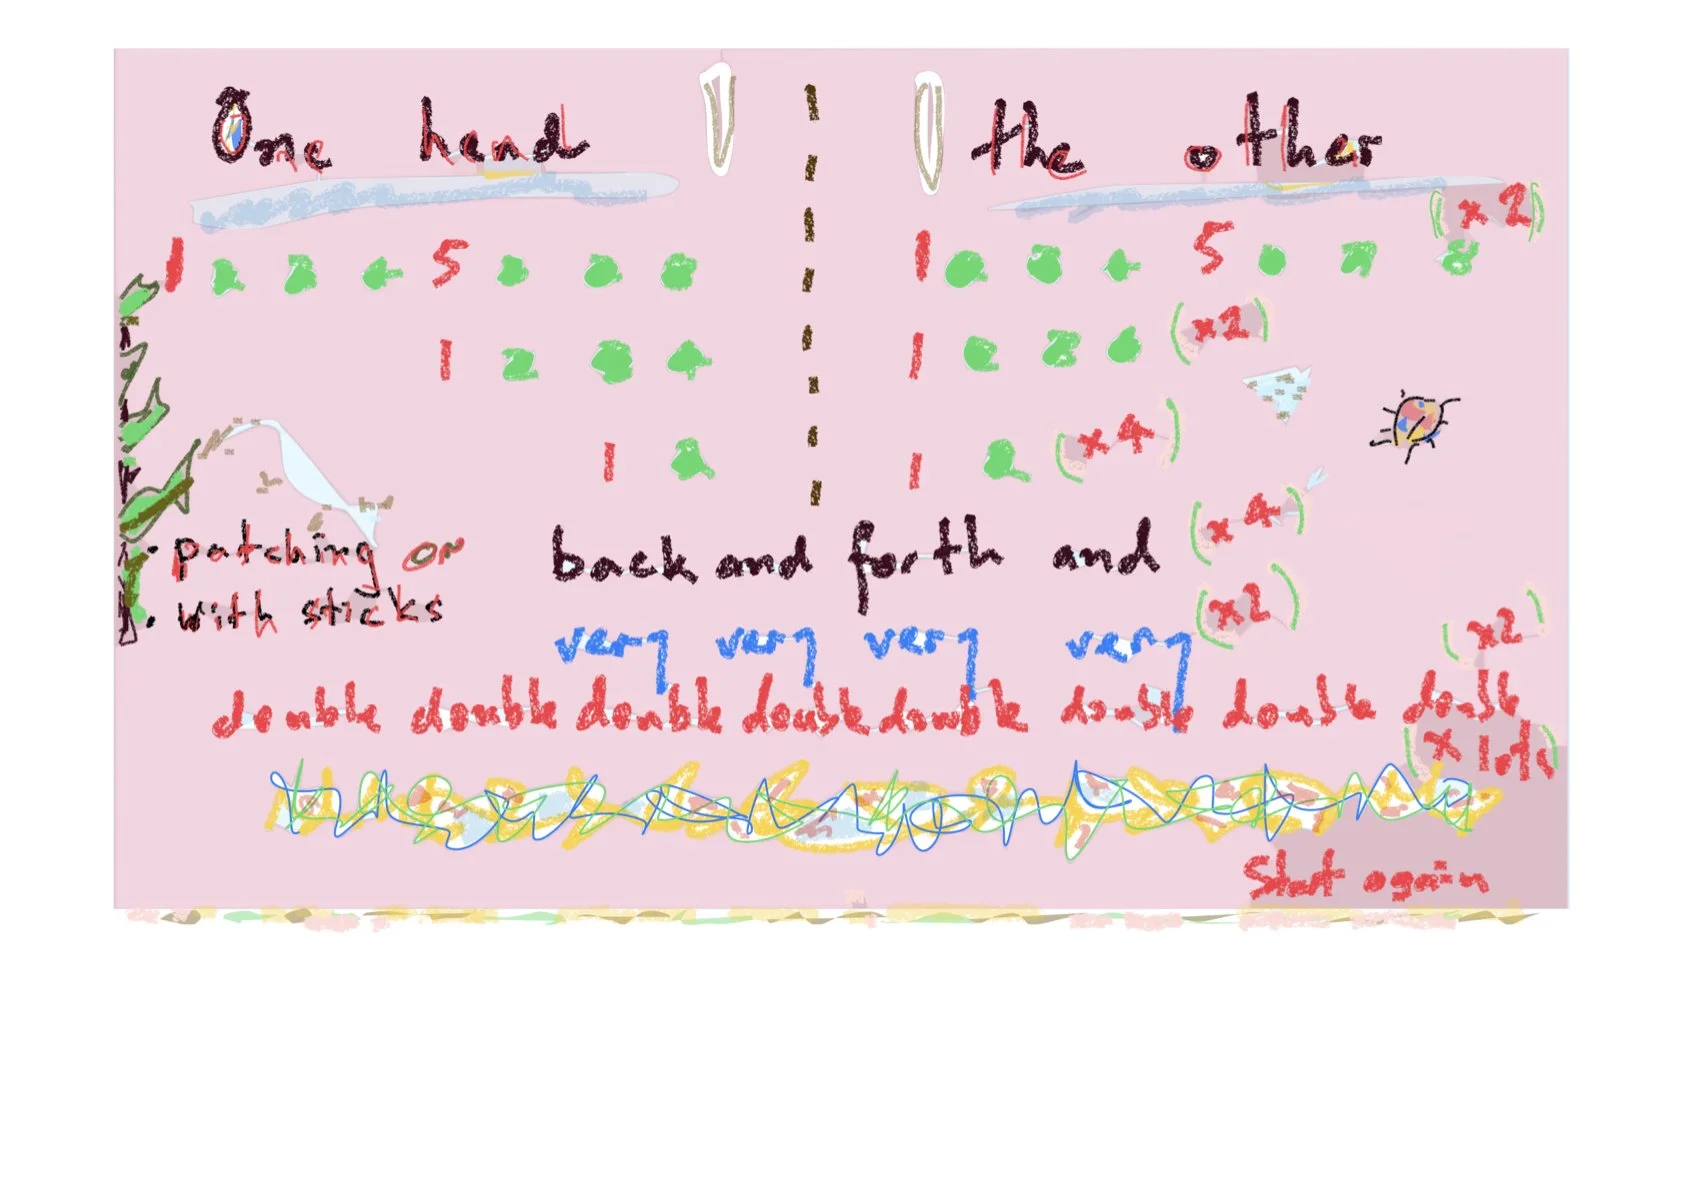 One hand the other
1 2 3 4 5 6 7 8 1 2 3 4 5 6 7 8 (x2)
1 2 3 4 1 2 3 4 (x2)
1 2 1 2 (x4)
back and forth and (x4)
• patching or
• with sticks
(x2)
very very very very (x2)
double double double double double double double double
(x lots)
Start again